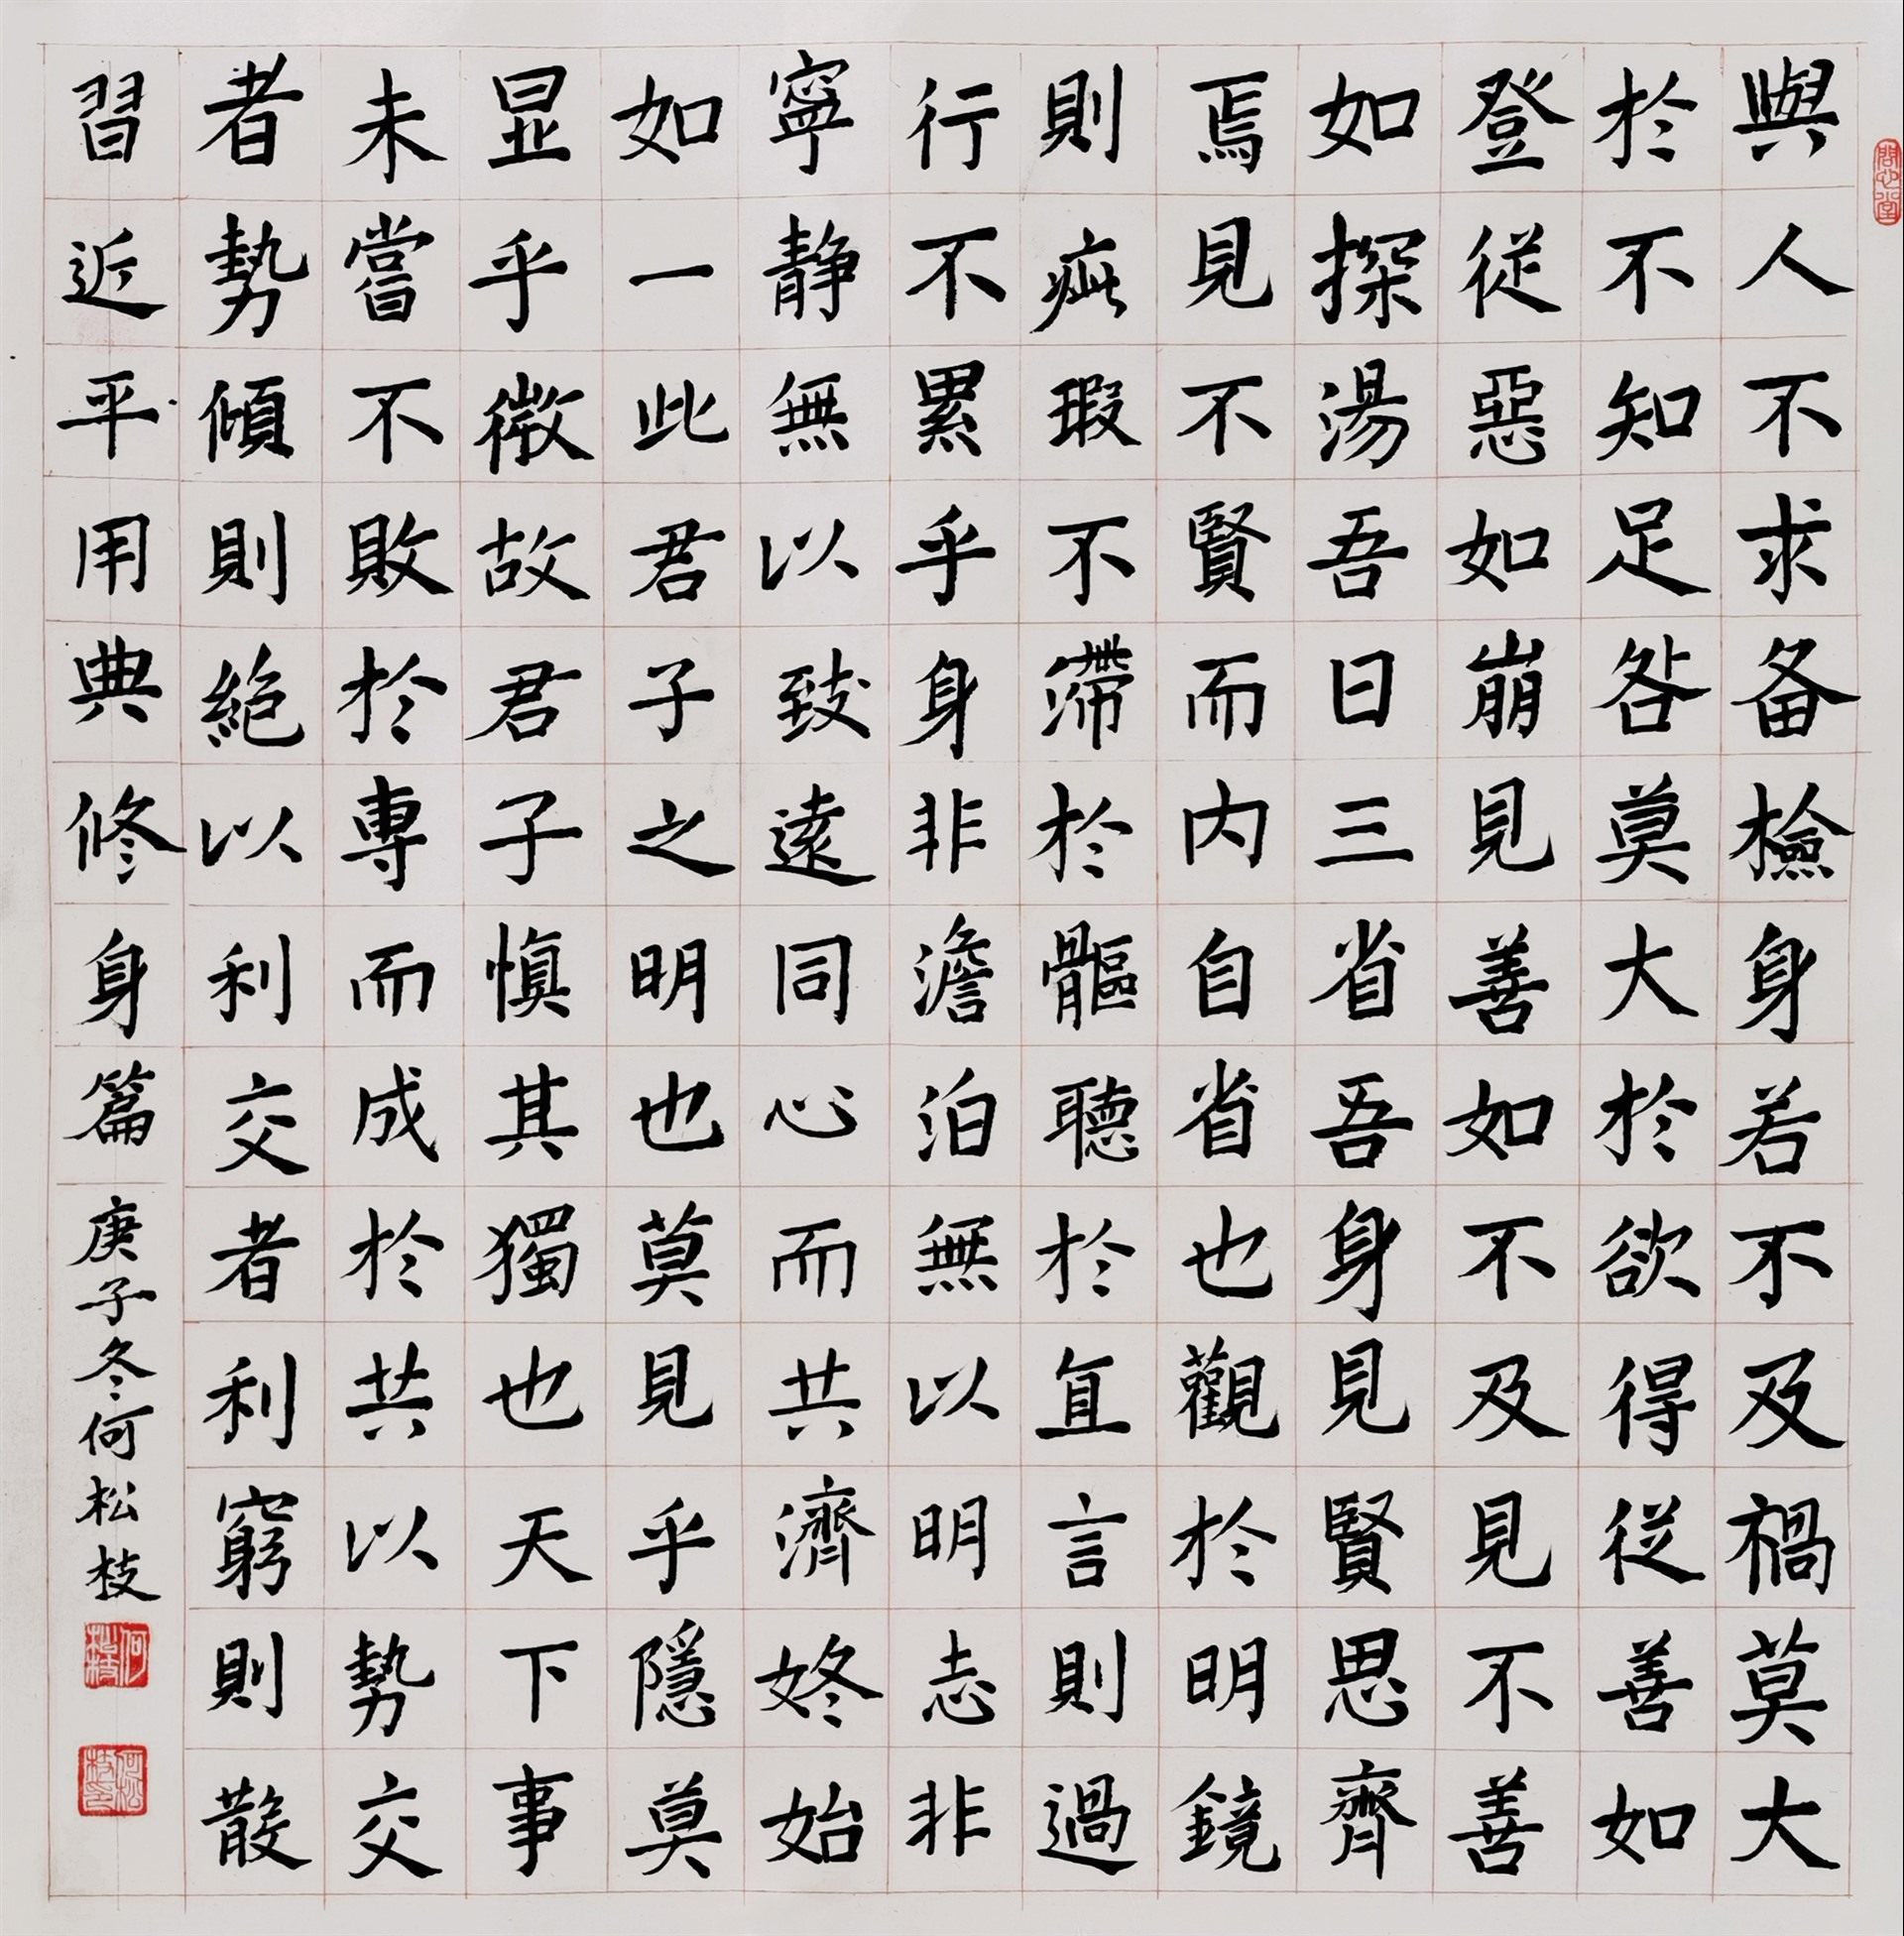 與人不求备檢身若不及禍莫大
於不知足咎莫大於欲得從善如
登從惡如崩見善如不及見不善
如探湯吾日三省吾身見賢思齊
焉見不賢而内自省也觀於明鏡
則疵瑕不滯於軀聽於直言則過
行不累乎身非澹泊無以明志非
寧静無以致遠同心而共濟始終
如一此君子之明也莫見乎隱莫
显乎微故君子慎其獨也天下事
未嘗不敗於專而成於共以勢交
者勢傾則絕以利交者利窮則散
習近平用典修身篇 庚子冬何松枝
何松枝
何松枝印